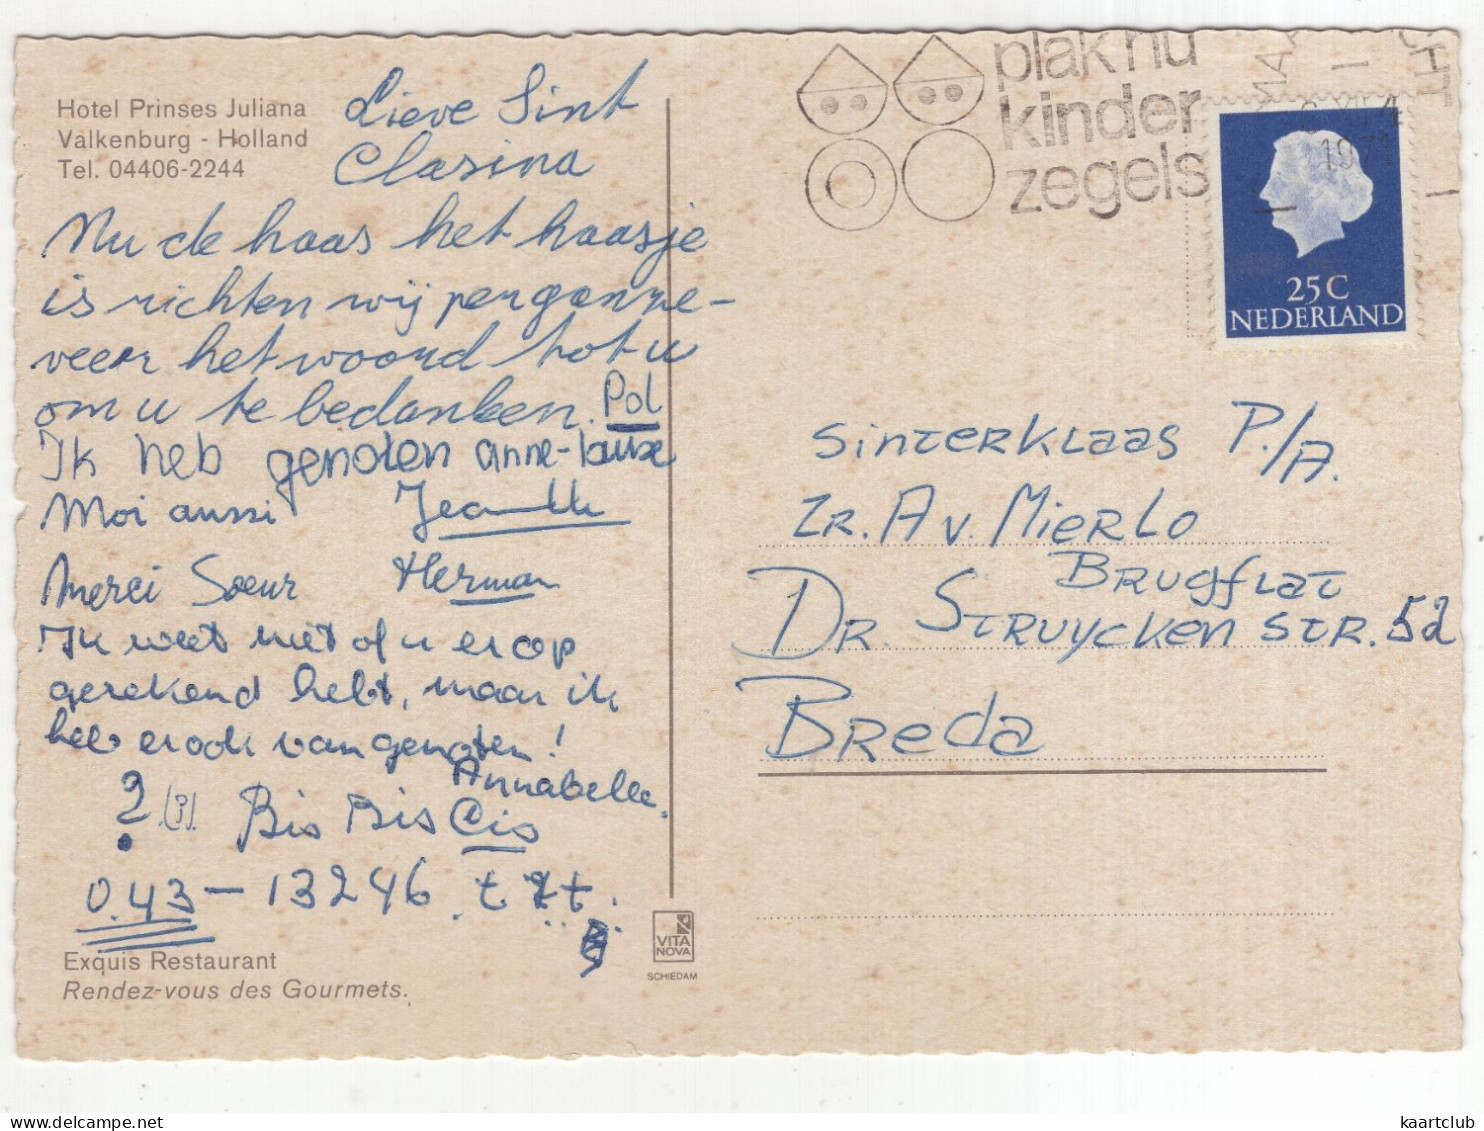 Hotel Prinses Juliana
Valkenburg - Holland
Tel. 04406-2244
Lieve Sint
Clasina
Nu de haas het haasje
is richten wij per ganze-
veer het woord tot u
om u te bedanken. Pol
Ik heb genoten anne-louise
Moi aussi
Merci Soeur Herman
Ik weet niet of u erop
gerekend hebt, maar ik
heb er ook van genoten!
Annabelle.
? (?). Bis Bis Cis
0.43-13246
Exquis Restaurant
Rendez-vous des Gourmets.
VITA
NOVA
SCHIEDAM
plak nu
kinder
zegels
1971
25C
NEDERLAND
Sinterklaas P./A.
Zr. A v. Mierlo
Brugflat
Dr. Struycken str. 52
Breda
kaartclub